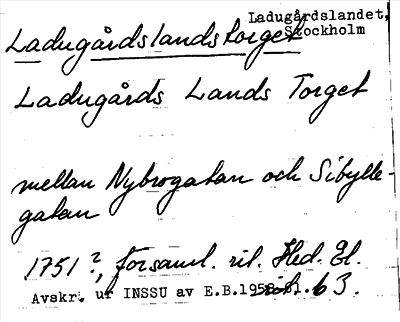 Ladugårdslandet,
Stockholm
Ladugårdslandstorget
Ladugårds Lands Torget
mellan Nybrogatan och Sibylle-
gatan
1751?, församl. rit. Hed. El.
Avskr. ur INSSU av E.B.1958-61. 63.